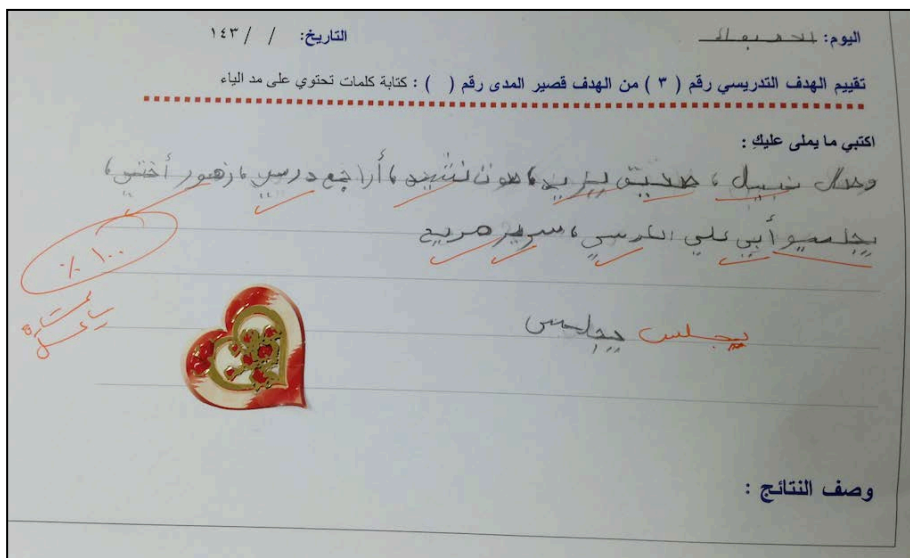 اليوم: التاريخ: / / ١٤٣
تقييم الهدف التدريسي رقم ( ٣ ) من الهدف قصير المدى رقم ( ) : كتابة كلمات تحتوي على مد الياء
اكتبي ما يملى عليكِ :
وصل نبيل ، صديق يزيد ، صوت نشيد ، أراجع درسي ، زهور أختي ،
أبي على الكرسي ، سرير مريح
١٠٠ ٪
يجلس يجلس
وصف النتائج :